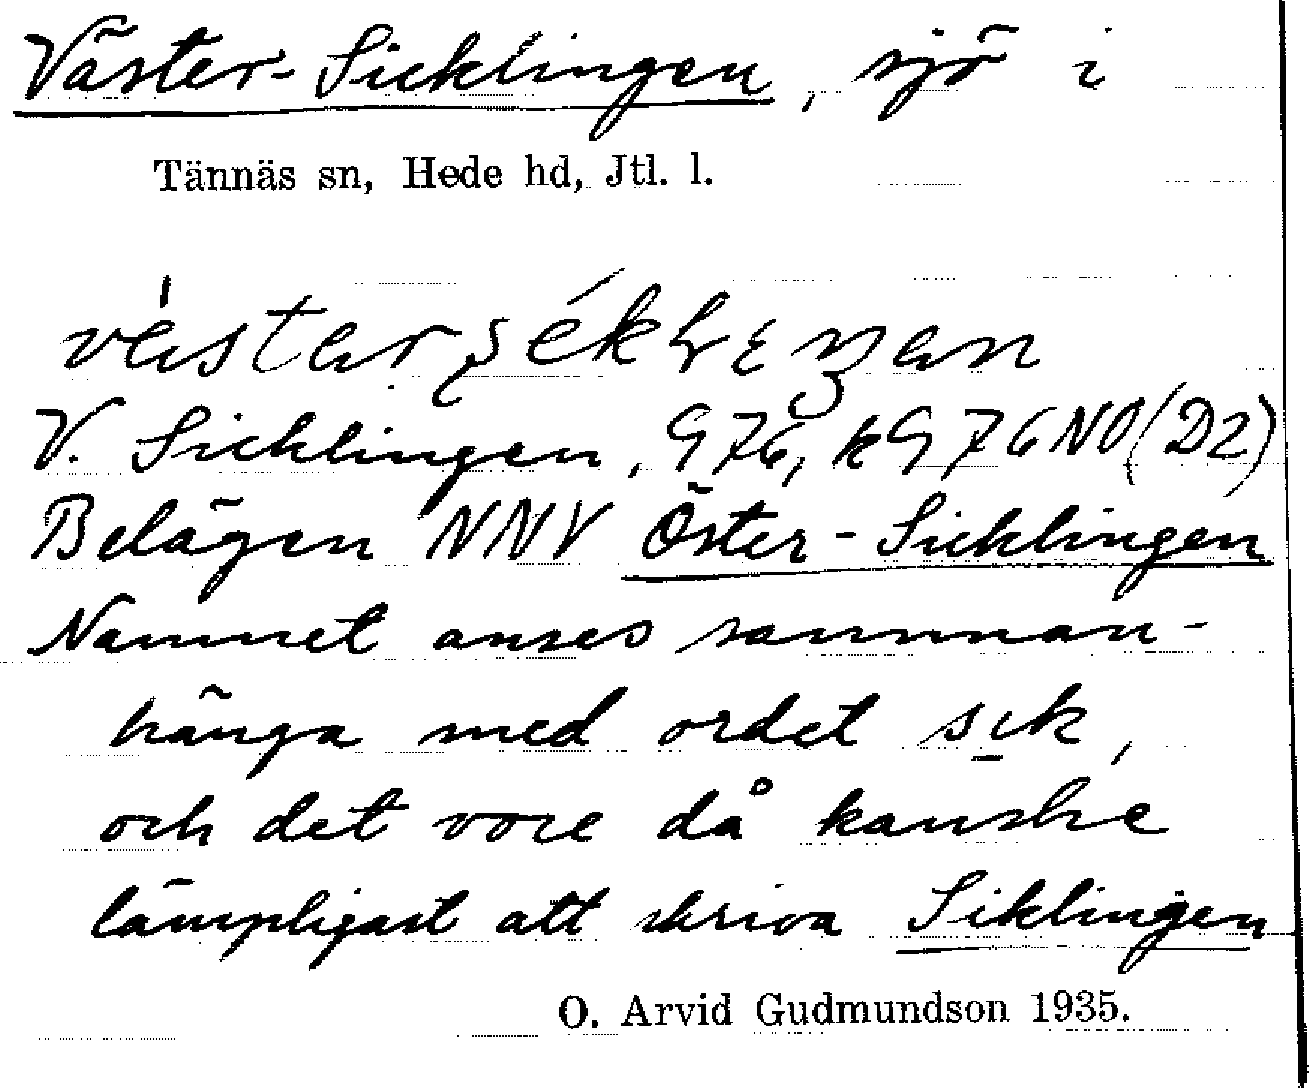 Väster-Sicklingen, sjö i
Tännäs sn, Hede hd, Jtl. l.
V. Sicklingen, G76, kG76NO(D2)
Belägen NNV Öster-Sicklingen
Namnet anses samman-
hänga med ordet sik,
och det vore då kanske
lämpligast att skriva Siklingen
O. Arvid Gudmundson 1935.